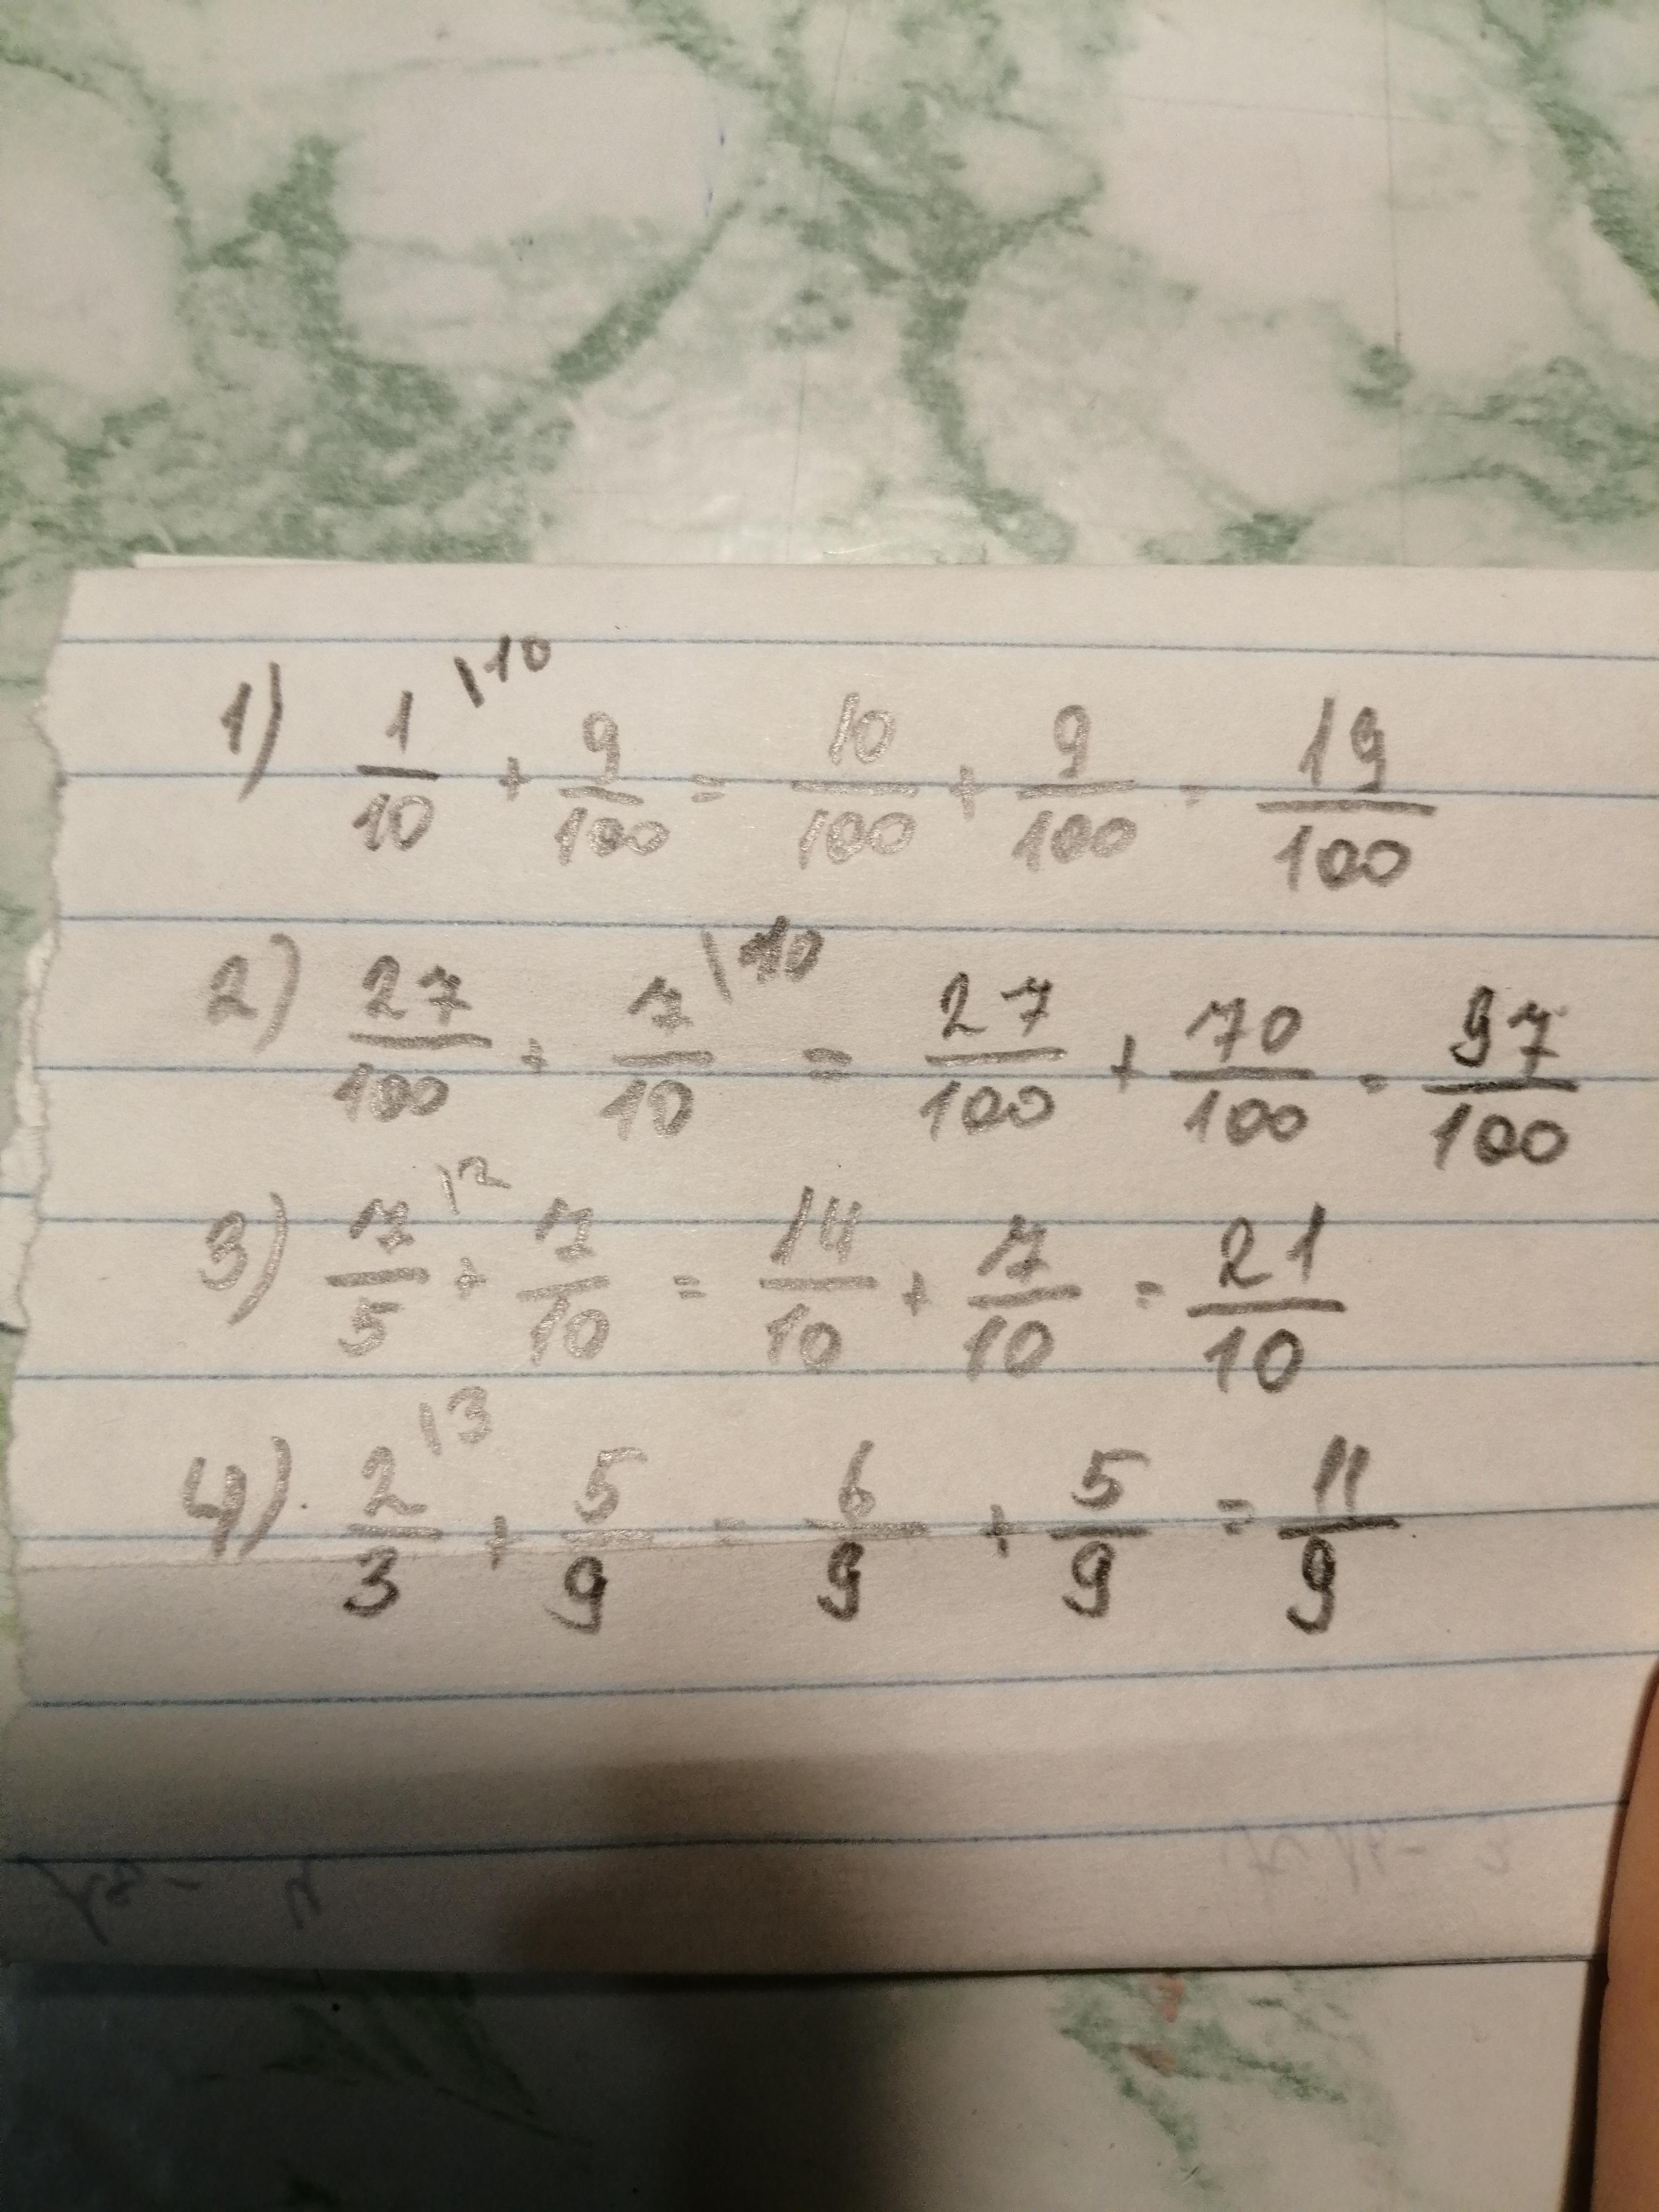 1) 1/10 |10 + 9/100 = 10/100 + 9/100 = 19/100
2) 27/100 + 7/10 |10 = 27/100 + 70/100 = 97/100
3) 7/5 |2 + 7/10 = 14/10 + 7/10 = 21/10
4) 2/3 |3 + 5/9 = 6/9 + 5/9 = 11/9